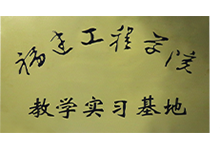 福建工程学院
教学实习基地